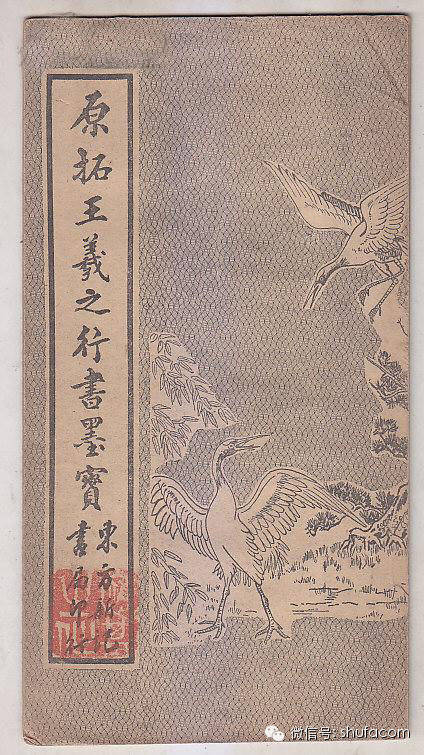 原拓王羲之行書墨寶
東方
書局印行
微信号: shufacom